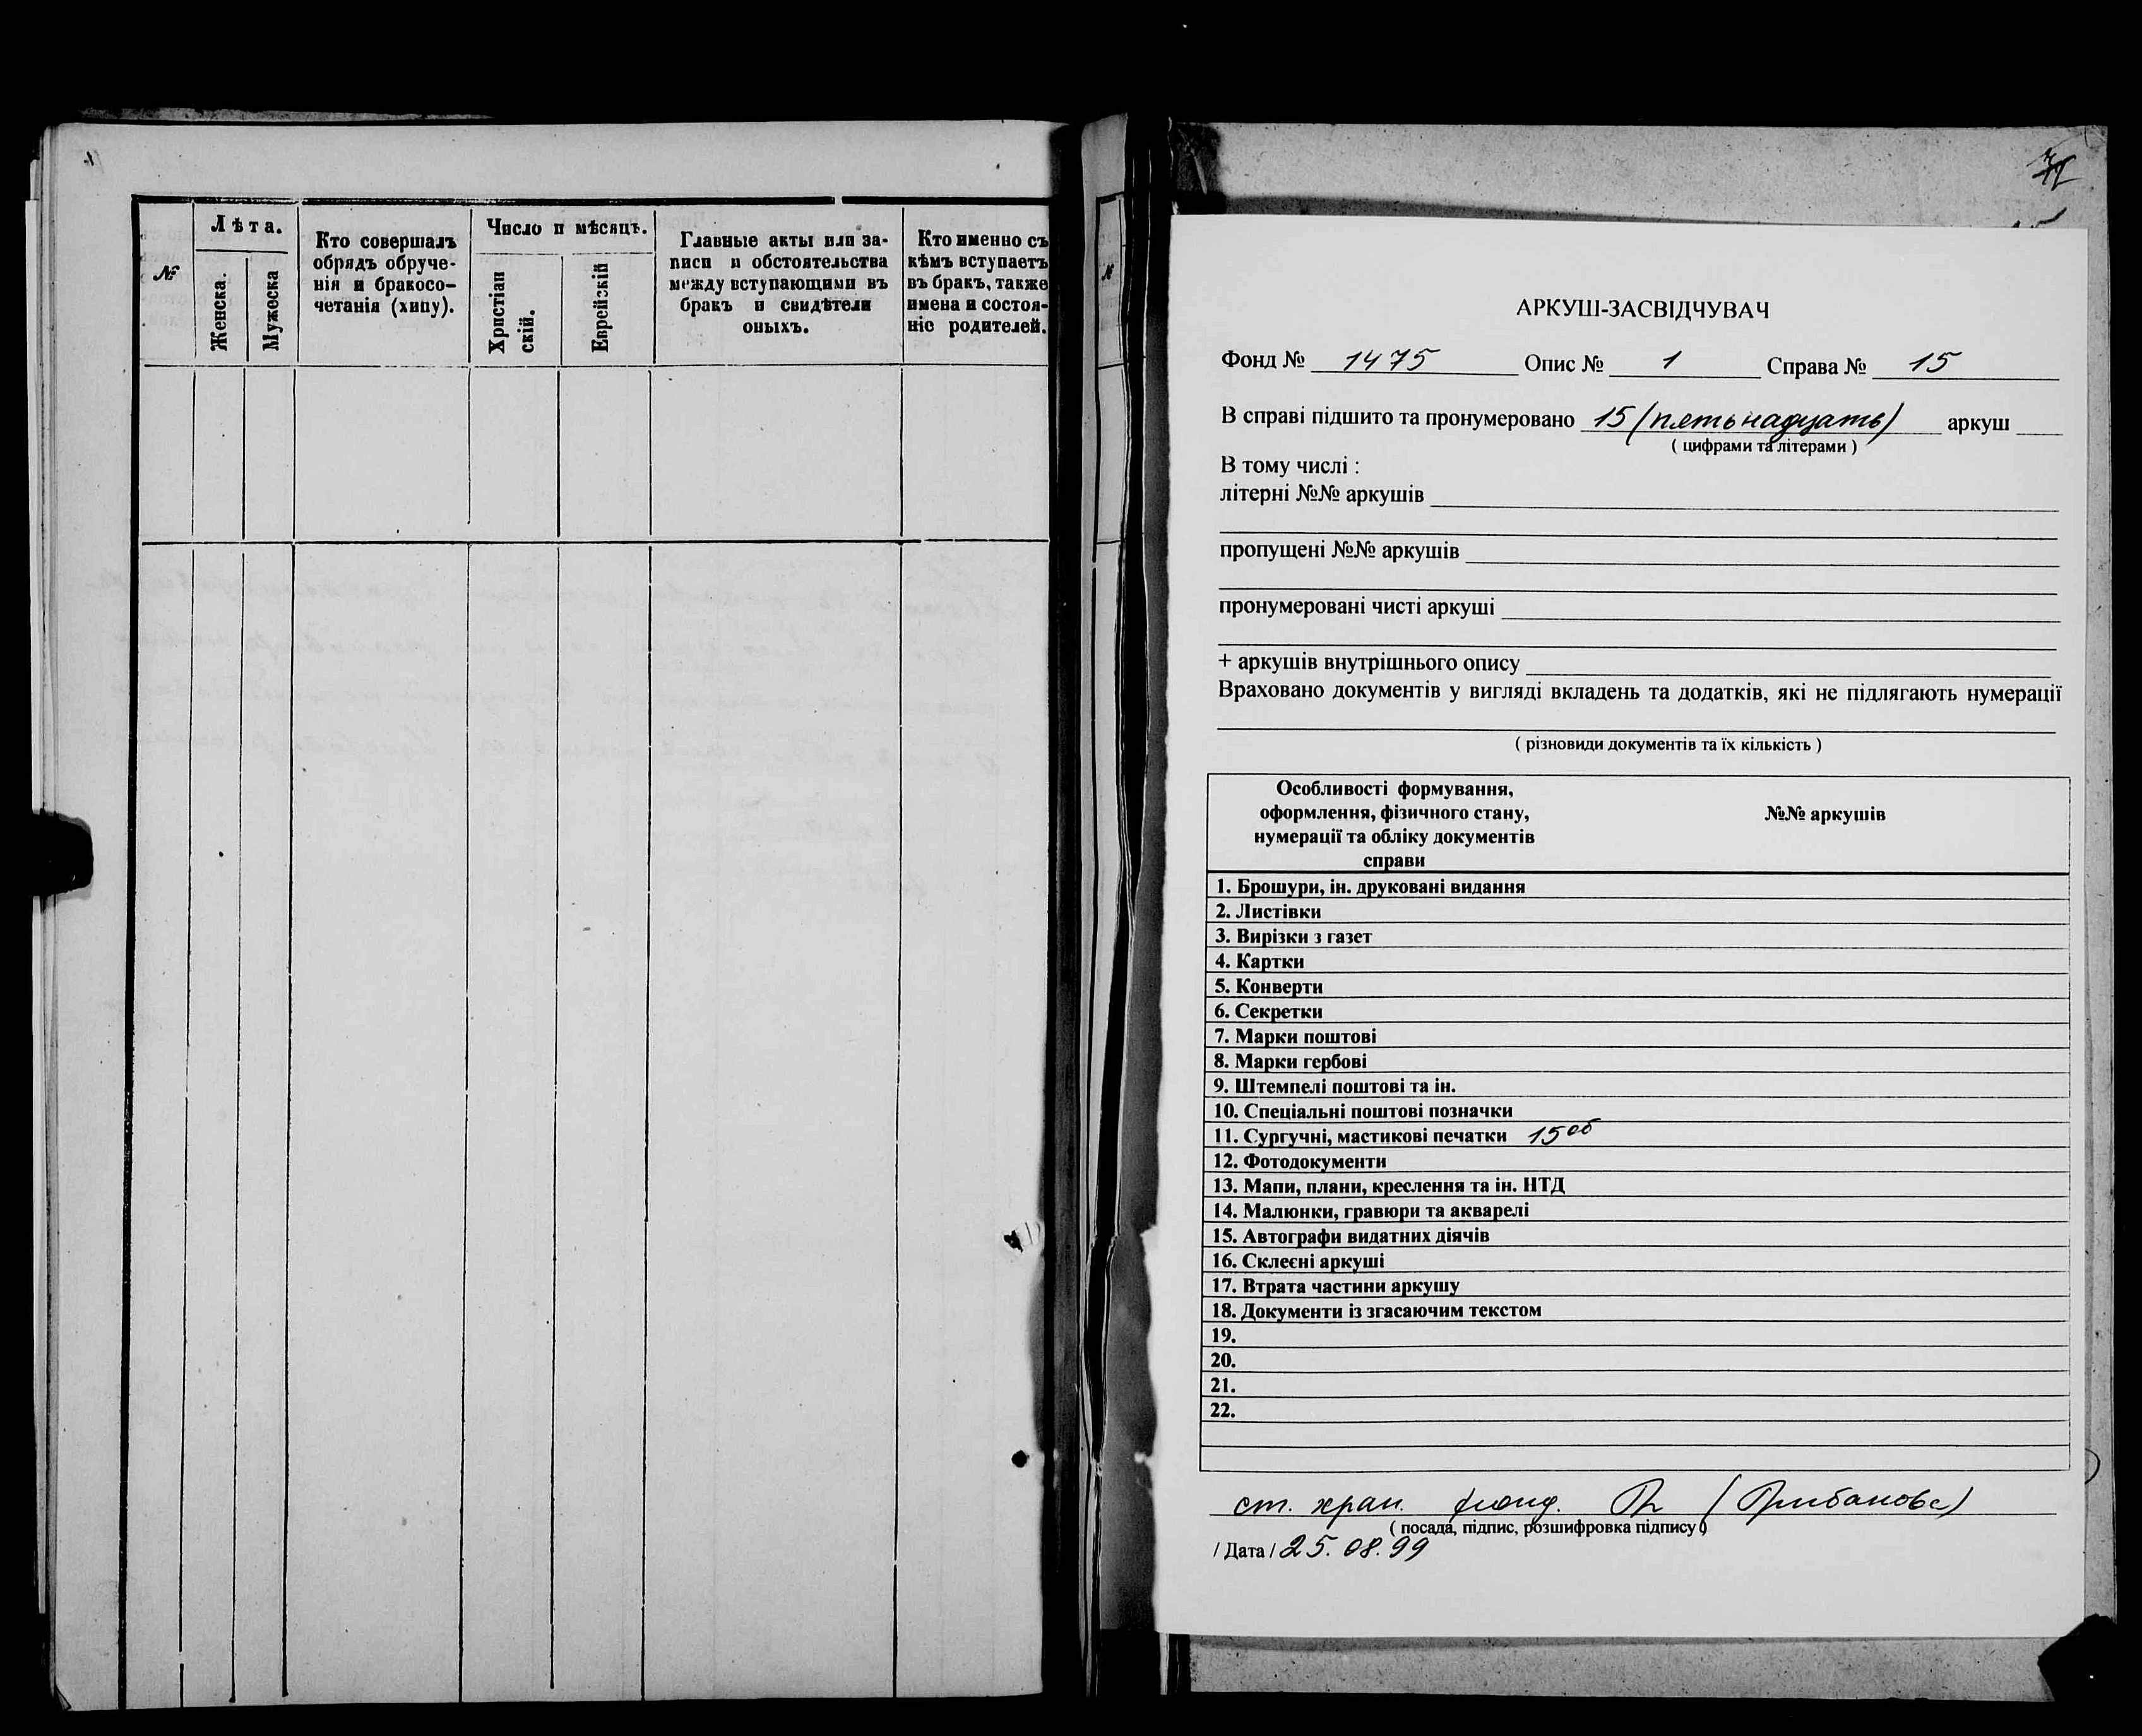 №
Лѣта.
Женска.
Мужеска
Кто совершалъ
обрядъ обруче-
нія и бракосо-
четанія (хипу).
Число и мѣсяцъ.
Христіан
скій.
Еврейскій
Главные акты или за-
писи и обстоятельства
между вступающими въ
бракъ и свидѣтели
оныхъ.
Кто именно съ
кѣмъ вступаетъ
въ бракъ, также
имена и состоя-
ніе родителей.
АРКУШ-ЗАСВІДЧУВАЧ
Фонд № 1475 Опис № 1 Справа № 15
В справі підшито та пронумеровано 15 (пятьнадцать) аркуш
( цифрами та літерами )
В тому числі :
літерні №№ аркушів
пропущені №№ аркушів
пронумеровані чисті аркуші
+ аркушів внутрішнього опису
Враховано документів у вигляді вкладень та додатків, які не підлягають нумерації
( різновиди документів та їх кількість )
Особливості формування,
оформлення, фізичного стану,
нумерації та обліку документів
справи
№№ аркушів
1. Брошури, ін. друковані видання
2. Листівки
3. Вирізки з газет
4. Картки
5. Конверти
6. Секретки
7. Марки поштові
8. Марки гербові
9. Штемпелі поштові та ін.
10. Спеціальні поштові позначки
11. Сургучні, мастикові печатки 15об
12. Фотодокументи
13. Мапи, плани, креслення та ін. НТД
14. Малюнки, гравюри та акварелі
15. Автографи видатних діячів
16. Склеєні аркуші
17. Втрата частини аркушу
18. Документи із згасаючим текстом
19.
20.
21.
22.
ст. хран. фонд.
( посада, підпис, розшифровка підпису )
/ Дата / 25.08.99